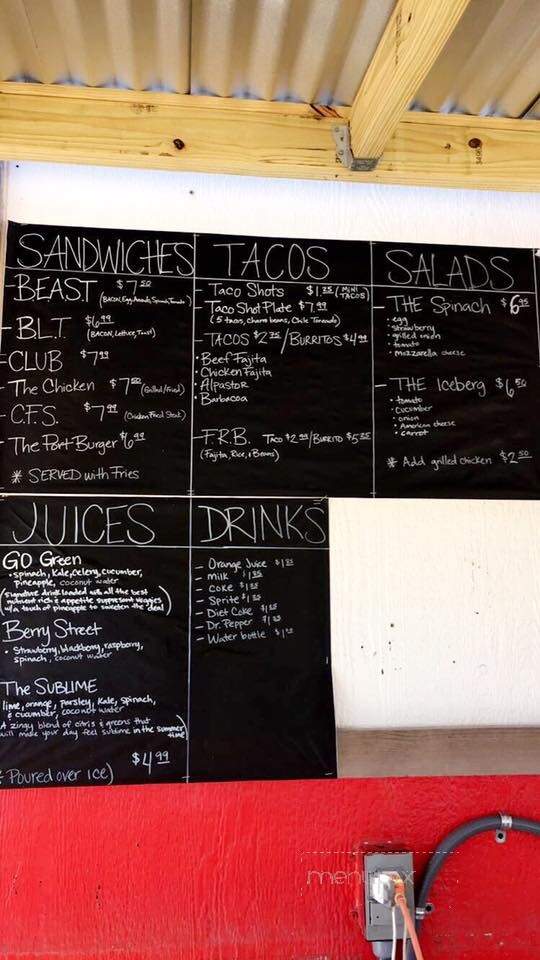 SANDWICHES
BEAST $7.50
(BACON, Egg, Avocado, Spinach, Tomato)
- BLT $6.99 (BACON, Lettuce, Toast)
- CLUB $7.99
- The Chicken $7.50 (Grilled/Fried)
- C.F.S. $7.99 (Chicken Fried Steak)
- The Port Burger $6.99
* SERVED with Fries
TACOS
- Taco Shots $1.25 (MINI TACOS)
Taco Shot Plate $7.99
(5 tacos, charro beans, Chile Toreado)
- TACOS $2.75/BURRITOS $4.99
• Beef Fajita
• Chicken Fajita
• Alpastor
• Barbacoa
- F.R.B. TACO $2.99/BURRITO $5.25
(Fajita, Rice, & Beans)
SALADS
- THE Spinach $6.95
• egg
• strawberry
• grilled onion
• tomato
• mozzarella cheese
- THE Iceberg $6.50
• tomato
• cucumber
• onion
• American cheese
• carrot
* Add grilled chicken $2.50
JUICES
GO Green
• spinach, Kale, celery, cucumber,
pineapple, coconut water
(signature drink loaded with all the best
nutrient rich & appetite suppresant veggies
w/a touch of pineapple to sweeten the deal)
Berry Street
• Strawberry, blackberry, raspberry,
spinach, coconut water
The SUBLIME
lime, orange, parsley, kale, spinach,
& cucumber, coconut water
A zingy blend of citris & greens that
will make your day feel sublime in the summer
time)
$4.99
* Poured over ice)
DRINKS
- Orange Juice
- Milk
- Coke
- Sprite
- Diet Coke
- Dr. Pepper
- Water bottle
menupix